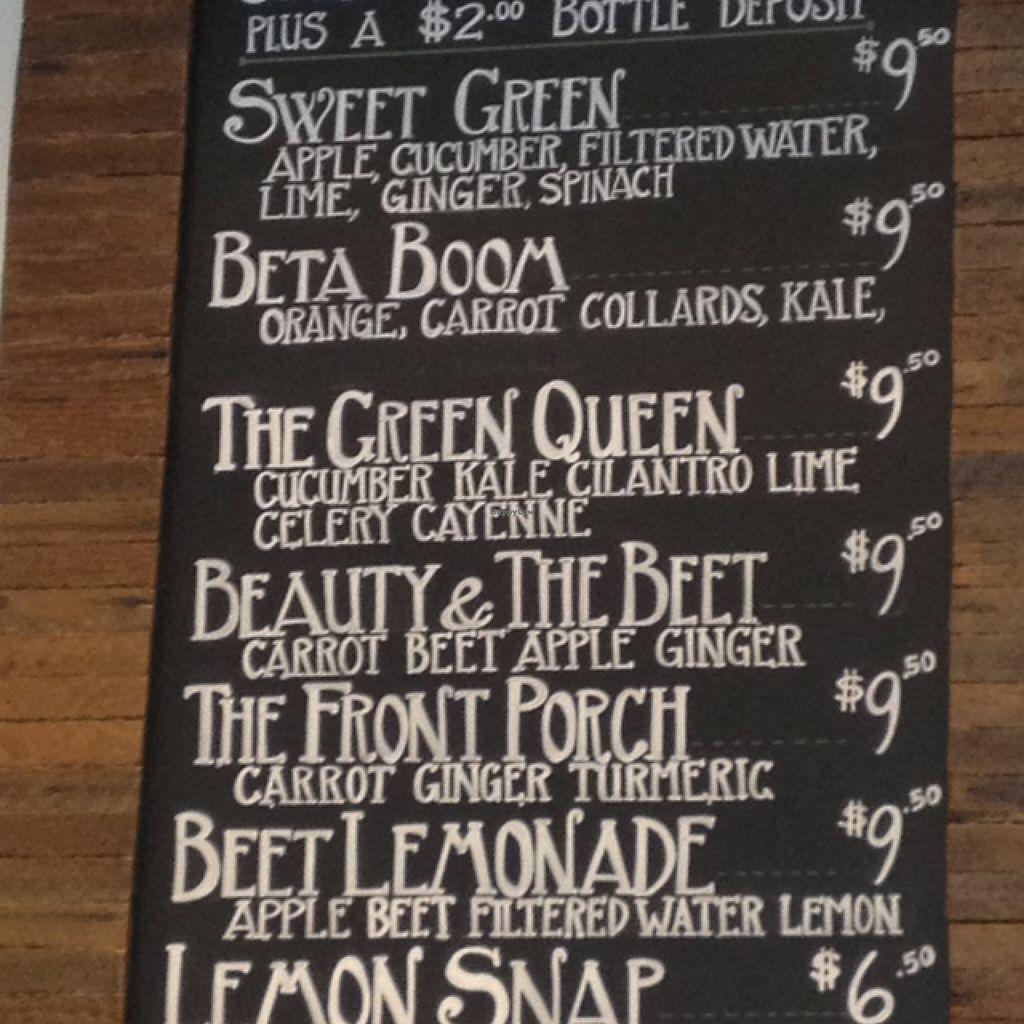 PLUS A $2.00 BOTTLE DEPOSIT
SWEET GREEN $9.50
APPLE, CUCUMBER, FILTERED WATER,
LIME, GINGER, SPINACH
BETA BOOM $9.50
ORANGE, CARROT COLLARDS, KALE,
THE GREEN QUEEN $9.50
CUCUMBER KALE CILANTRO LIME
CELERY CAYENNE
BEAUTY & THE BEET $9.50
CARROT BEET APPLE GINGER
THE FRONT PORCH $9.50
CARROT GINGER TURMERIC
BEET LEMONADE $9.50
APPLE BEET FILTERED WATER LEMON
LEMON SNAP $6.50